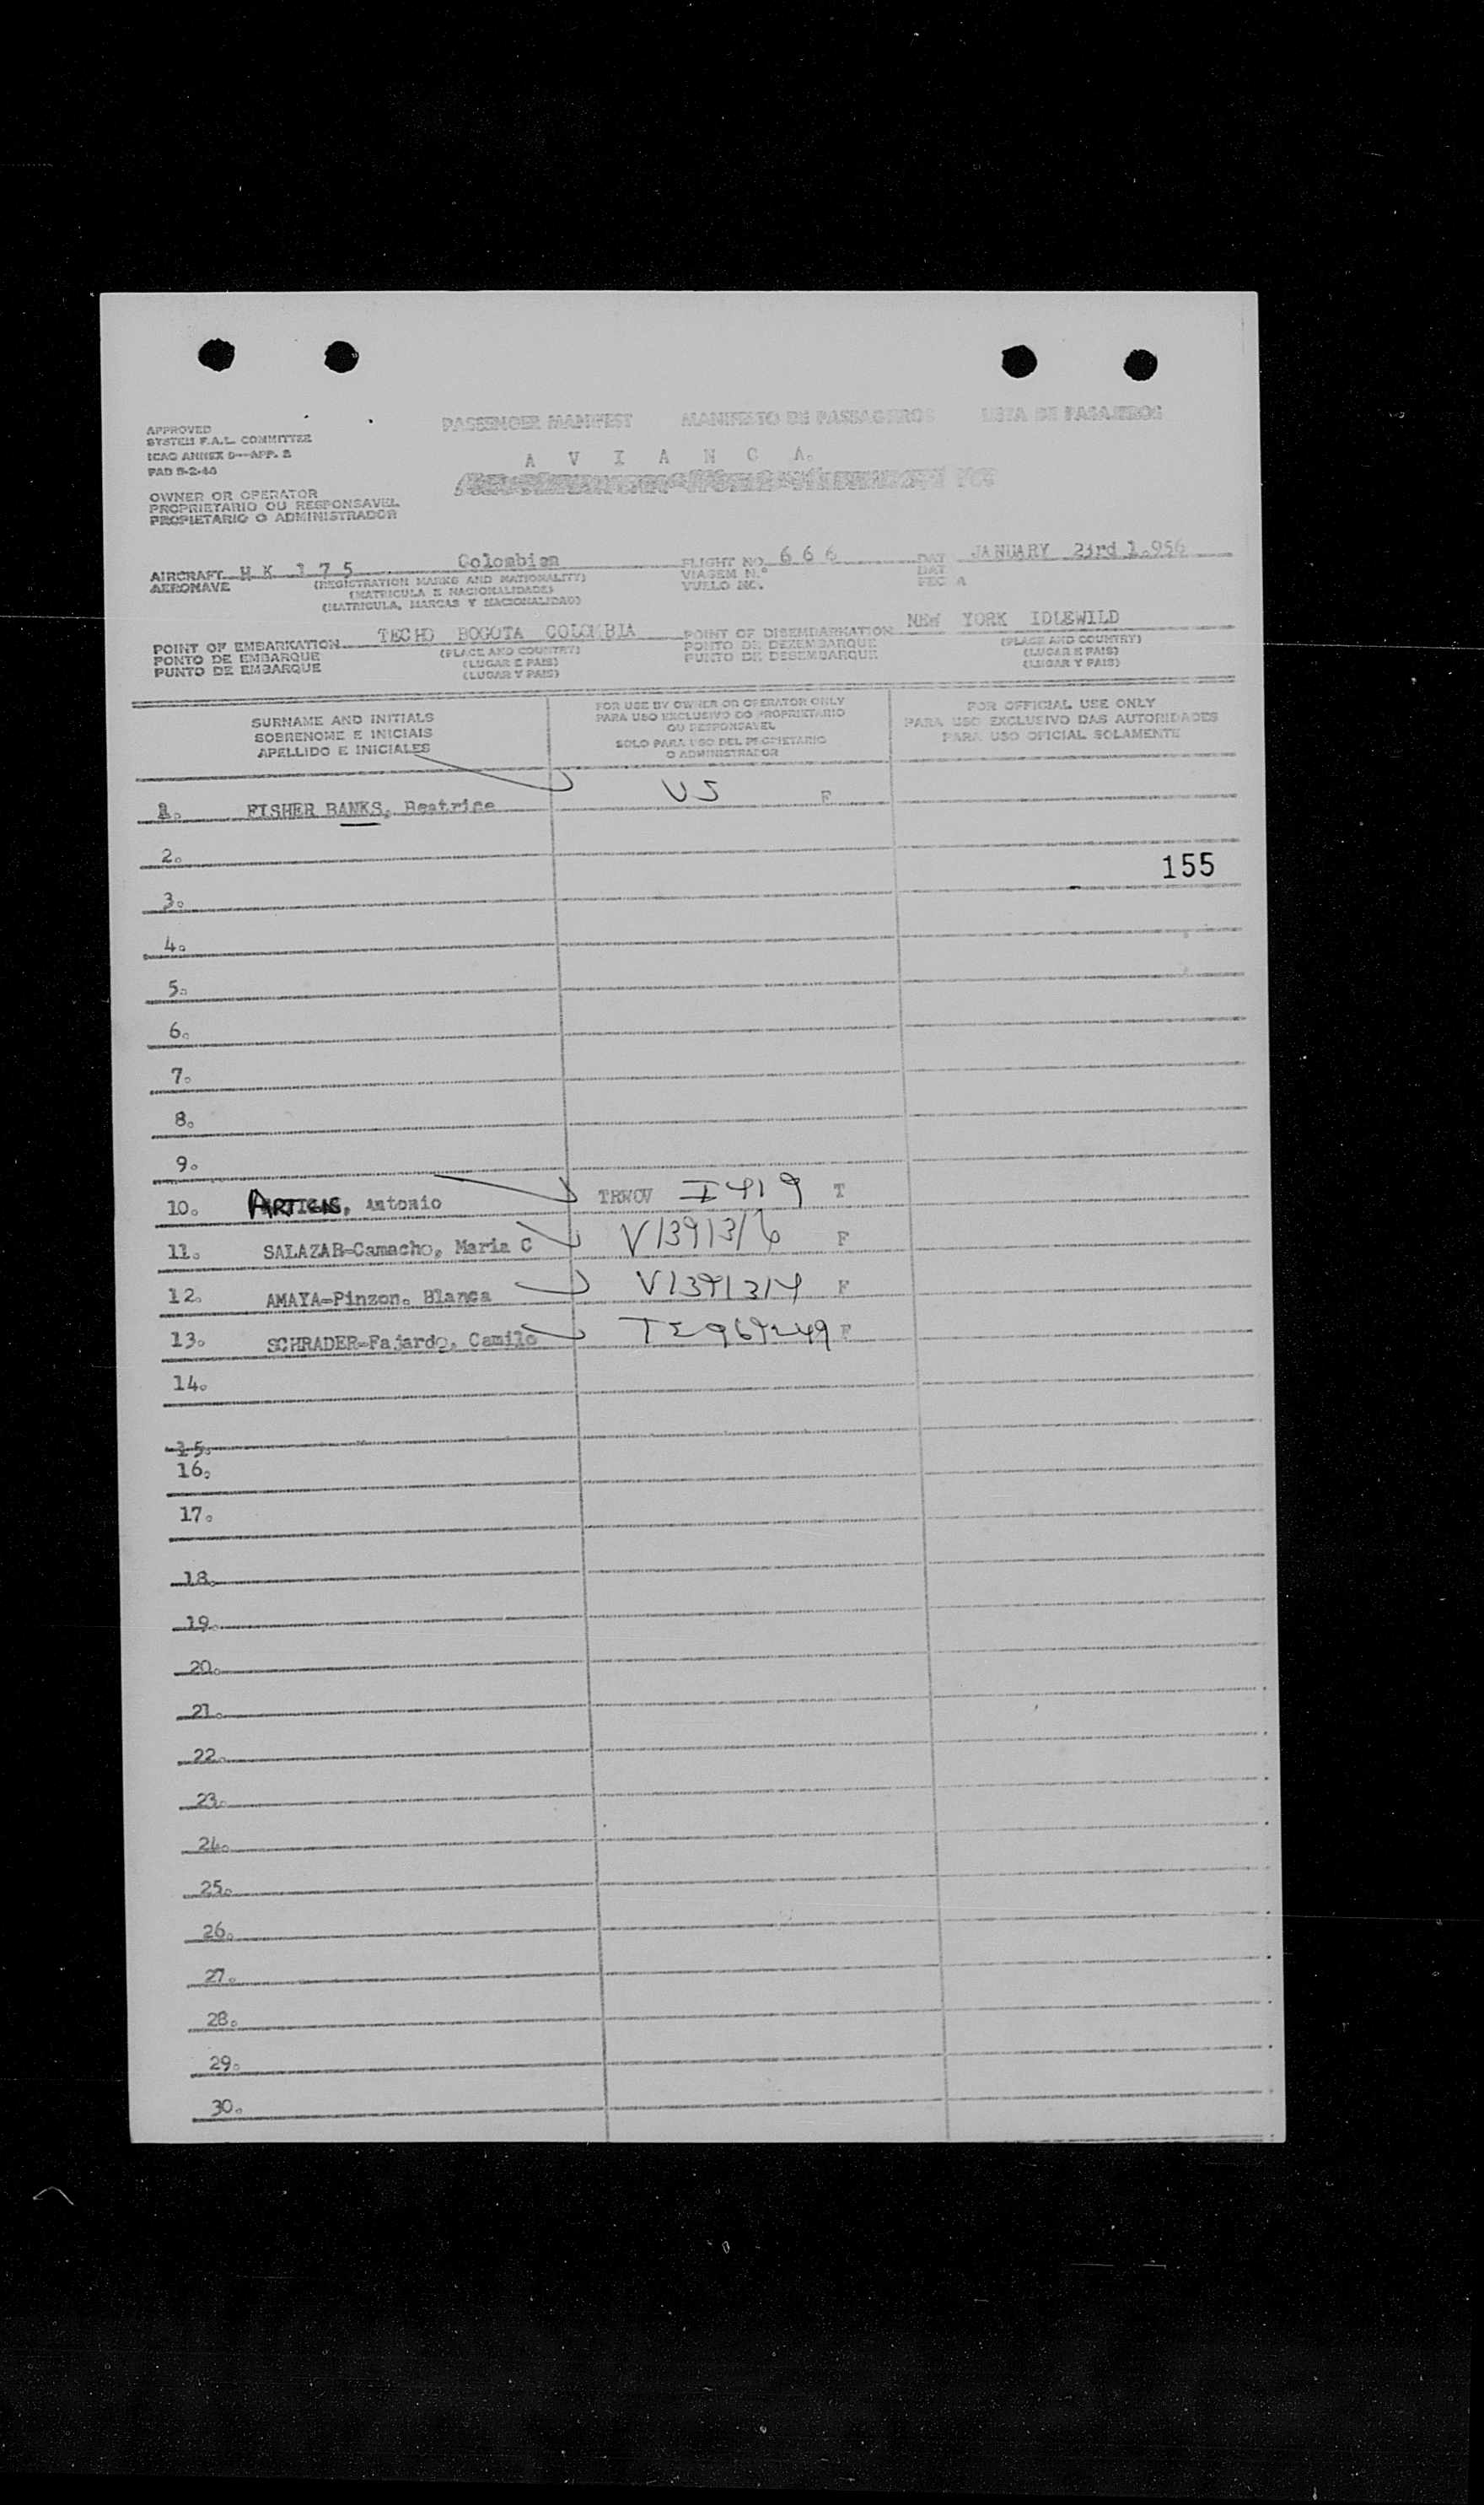 PASSENGER MANIFEST MANIFESTO DE PASSAGEIROS LISTA DE PASAJEROS
APPROVED
SYSTEM F.A.L. COMMITTEE
ICAO ANNEX 9—APP. B
PAD 5-2-46
A V I A N C A.
OWNER OR OPERATOR
PROPRIETARIO OU RESPONSAVEL
PROPIETARIO O ADMINISTRADOR
AIRCRAFT H K 1 7 5 Colombian FLIGHT NO. 6 6 6 DAT JANUARY 23rd 1.956
AERONAVE (REGISTRATION MARKS AND NATIONALITY) VIAGEM N.º DAT
(MATRICULA E NACIONALIDADE) VUELO NO. FEC A
(MATRICULA, MARCAS Y NACIONALIDAD)
POINT OF EMBARKATION TECHO BOGOTA COLOMBIA POINT OF DISEMBARKATION NEW YORK IDLEWILD
PONTO DE EMBARQUE (PLACE AND COUNTRY) PONTO DE DEZEMBARQUE (PLACE AND COUNTRY)
PUNTO DE EMBARQUE (LUGAR E PAIS) PUNTO DE DESEMBARQUE (LUGAR E PAIS)
(LUGAR Y PAIS) (LUGAR Y PAIS)
SURNAME AND INITIALS
SOBRENOME E INICIAIS
APELLIDO E INICIALES
FOR USE BY OWNER OR OPERATOR ONLY
PARA USO EXCLUSIVO DO PROPRIETARIO
OU RESPONSAVEL
SOLO PARA USO DEL PROPIETARIO
O ADMINISTRADOR
FOR OFFICIAL USE ONLY
PARA USO EXCLUSIVO DAS AUTORIDADES
PARA USO OFICIAL SOLAMENTE
1. FISHER BANKS, Beatrice US F
2.
155
3.
4.
5.
6.
7.
8.
9.
10. ARTIGAS, Antonio TRWOV I419 T
11. SALAZAR-Camacho, Maria C V1391316 F
12. AMAYA-Pinzon, Blanca V1391314 F
13. SCHRADER-Fajardo, Camilo F
14.
15.
16.
17.
18.
19.
20.
21.
22.
23.
24.
25.
26.
27.
28.
29.
30.